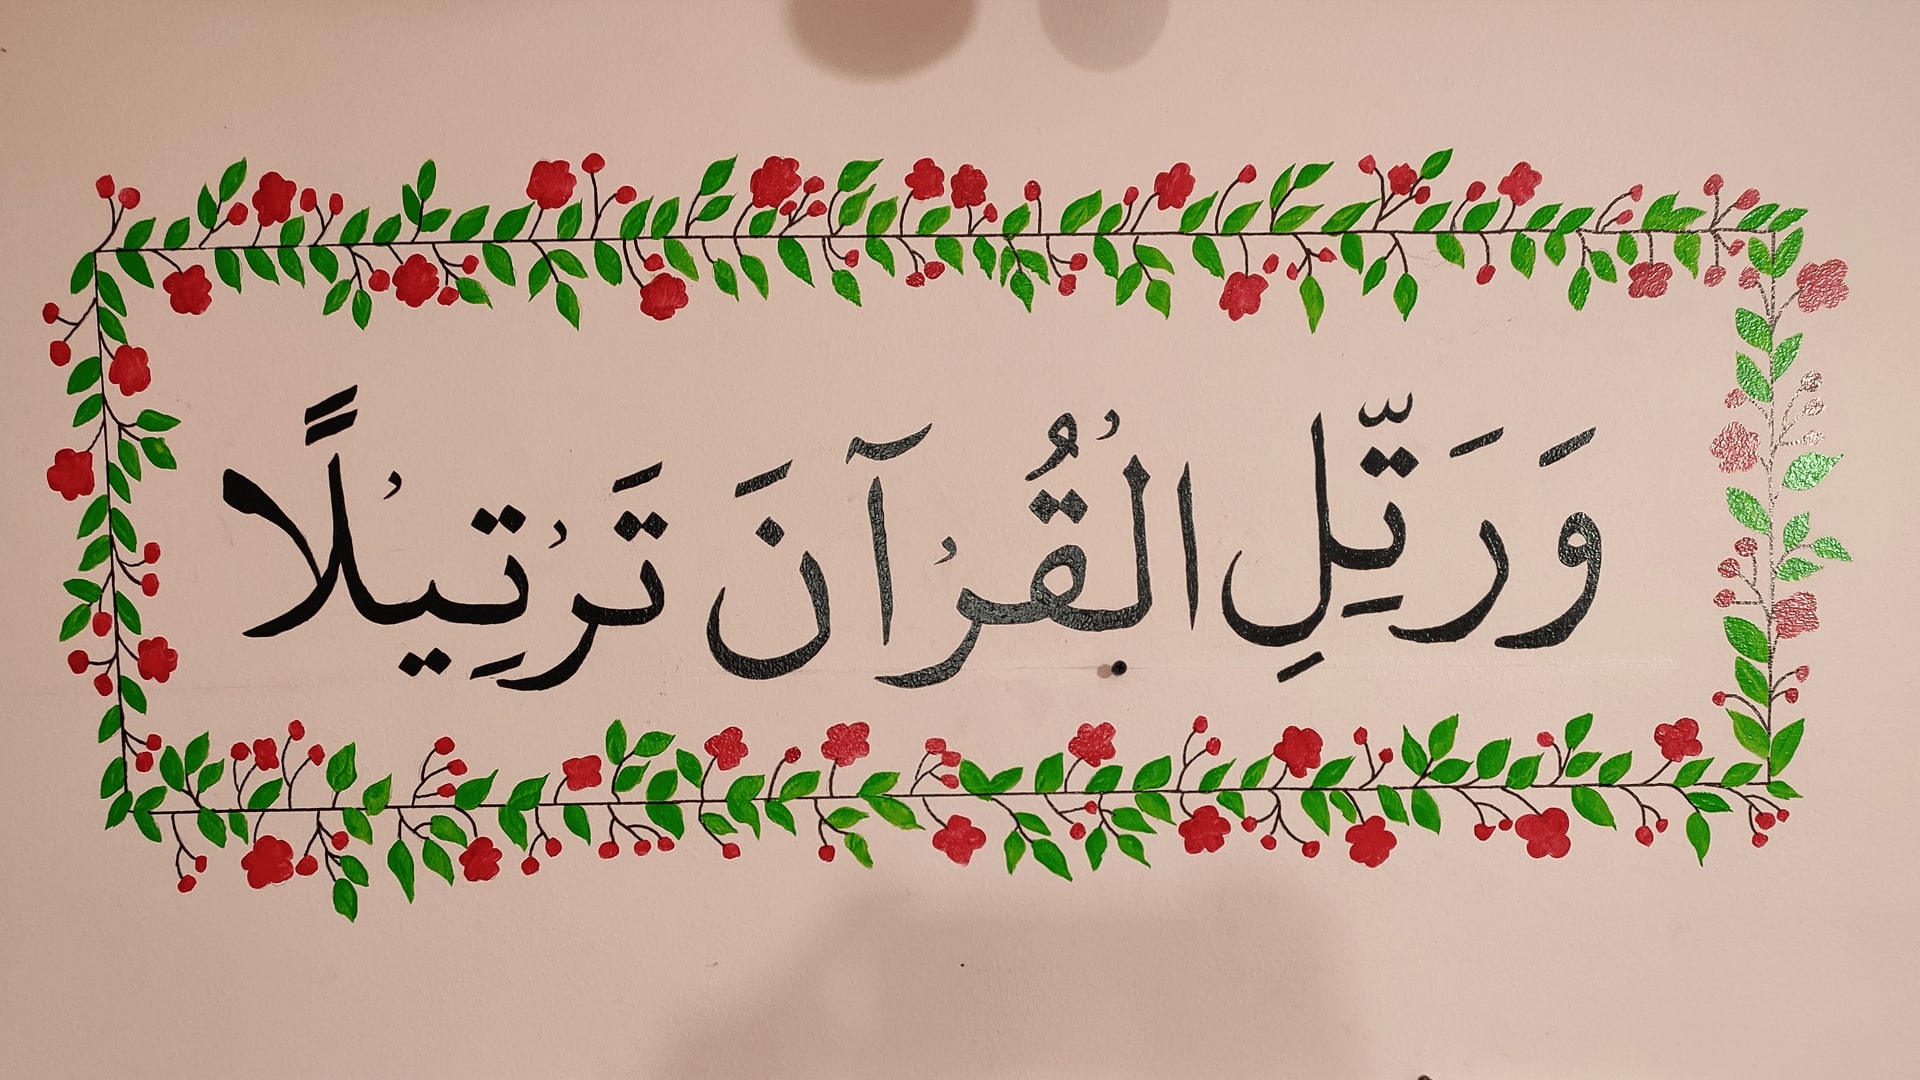 وَرَتِّلِ الْقُرْآنَ تَرْتِيْلًا